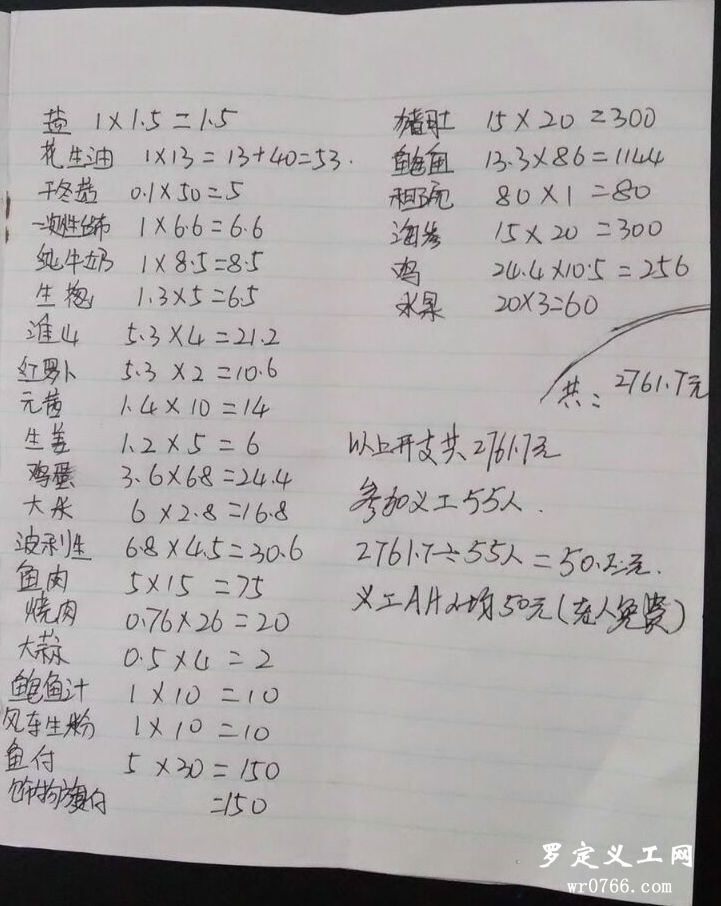 盐 1×1.5=1.5
花生油 1×13=13+40=53.
干冬菇 0.1×50=5
一次性台布 1×6.6=6.6
纯牛奶 1×8.5=8.5
生葱 1.3×5=6.5
淮山 5.3×4=21.2
红萝卜 5.3×2=10.6
元茜 1.4×10=14
生姜 1.2×5=6
鸡蛋 3.6×68=24.4
大米 6×2.8=16.8
波利生 6.8×4.5=30.6
鱼肉 5×15=75
烧肉 0.76×26=20
大蒜 0.5×4=2
鲍鱼汁 1×10=10
风车生粉 1×10=10
鱼付 5×30=150
=150
猪肚 15×20=300
鲍鱼 13.3×86=1144
租碗 80×1=80
海参 15×20=300
鸡 24.4×10.5=256
水果 20×3=60
共: 2761.7元
以上开支共2761.7元
参加义工55人.
2761.7÷55人=50.2元.
义工AA 人均50元(老人免费)
罗定义工网
wr0766.com